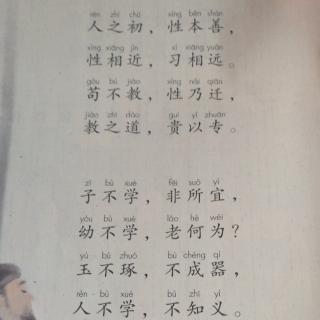 rén zhī chū xìng běn shàn
人之初，性本善，
xìng xiāng jìn xí xiāng yuǎn
性相近，习相远。
gǒu bú jiào xìng nǎi qiān
苟不教，性乃迁，
jiào zhī dào guì yǐ zhuān
教之道，贵以专。
zǐ bù xué fēi suǒ yí
子不学，非所宜，
yòu bù xué lǎo hé wéi
幼不学，老何为？
yù bù zhuó bù chéng qì
玉不琢，不成器，
rén bù xué bù zhī yì
人不学，不知义。